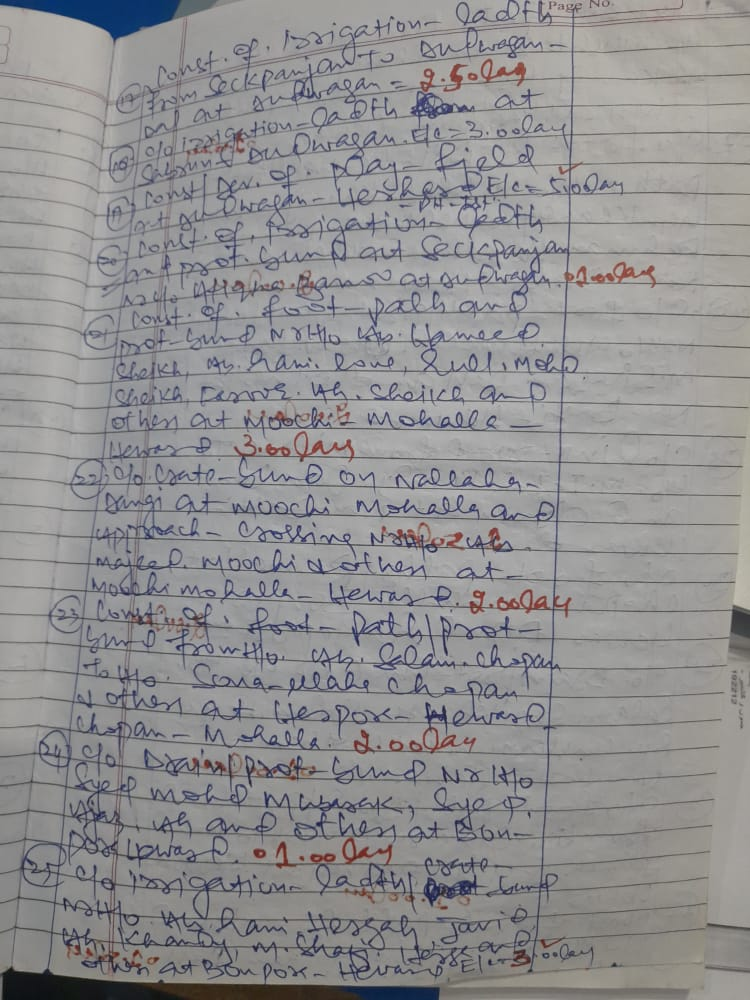 Page No.
(17) Const. of. Irrigation- Ladth
from Seckpanjan To Audwagan-
and at Audwagan = 2.50 Lay
(18) C/o Irrigation-Ladth at
Audwagan. E/c = 3.00 Lay
(19) Const/Dev. of. play-field
at Audwagan- E/c = 5.00 Lay
(20) Const. of. Irrigation- Ladth
and prot. Bund at Seckpanjan
Nr H/o Banoo at Audwagan. 01.00 Lay
(21) Const. of. foot-path and
prot-Bund Nr H/o Ab. Hameed.
Sheikh, Ab. Gani. Lone, Gull. Mohd.
Sheikh, Ah. Sheikh and
others at Moochi- Mohalla-
Heward. 3.00 Lay
(22) C/o. Crate-Bund on Nallaha-
Dangi at Moochi Mohalla and
Approach- Crossing Nr H/o Ab.
Majeed. Moochi & others at-
Moochi mohalla- Heward. 2.00 Lay
(23) Const. of. foot-path/prot-
Bund from H/o. Ab. Salam. Chopan
To H/o. Sona-ullah Chopan
& others at Hespor- Heward
Chopan- Mohalla. 2.00 Lay
(24) C/o Drain/prot-Bund Nr H/o
Syed Mohd Mubarak, Syed.
Ajaz. Ah and others at Bon-
01.00 Lay
(25) C/o Irrigation- Ladth/ Crate- Bund
Nr H/o Ab. Gani Javid
Ah. Khanday, M. Shafi and
others at Bonpor- Heward E/c = 3.00 Lay